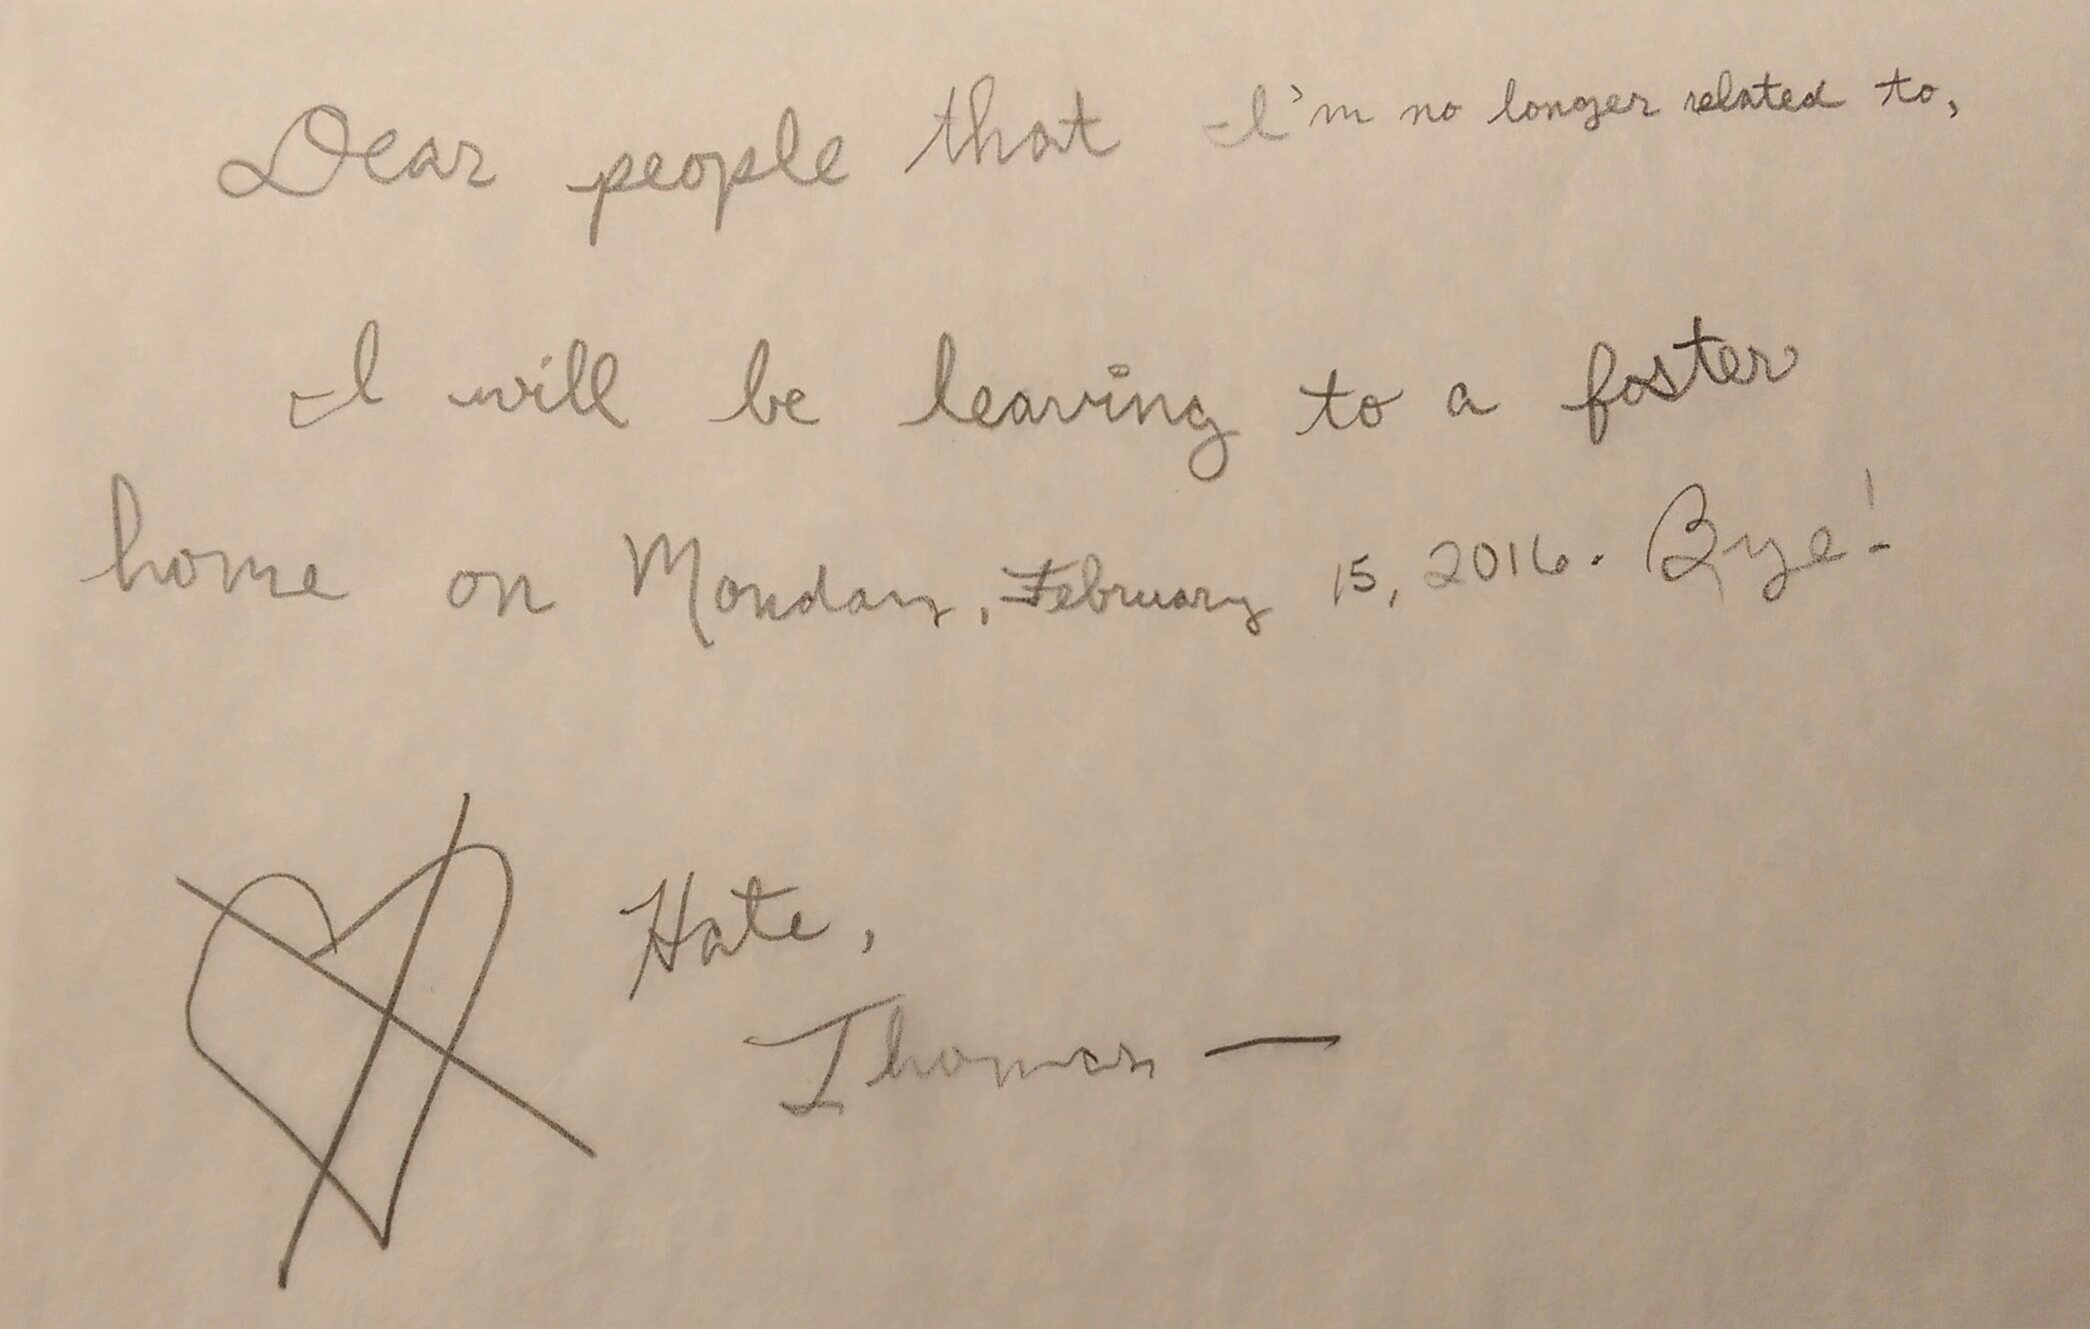 Dear people that I'm no longer related to,
I will be leaving to a foster
home on Monday, February 15, 2016. Bye!
Hate,
Thomas —